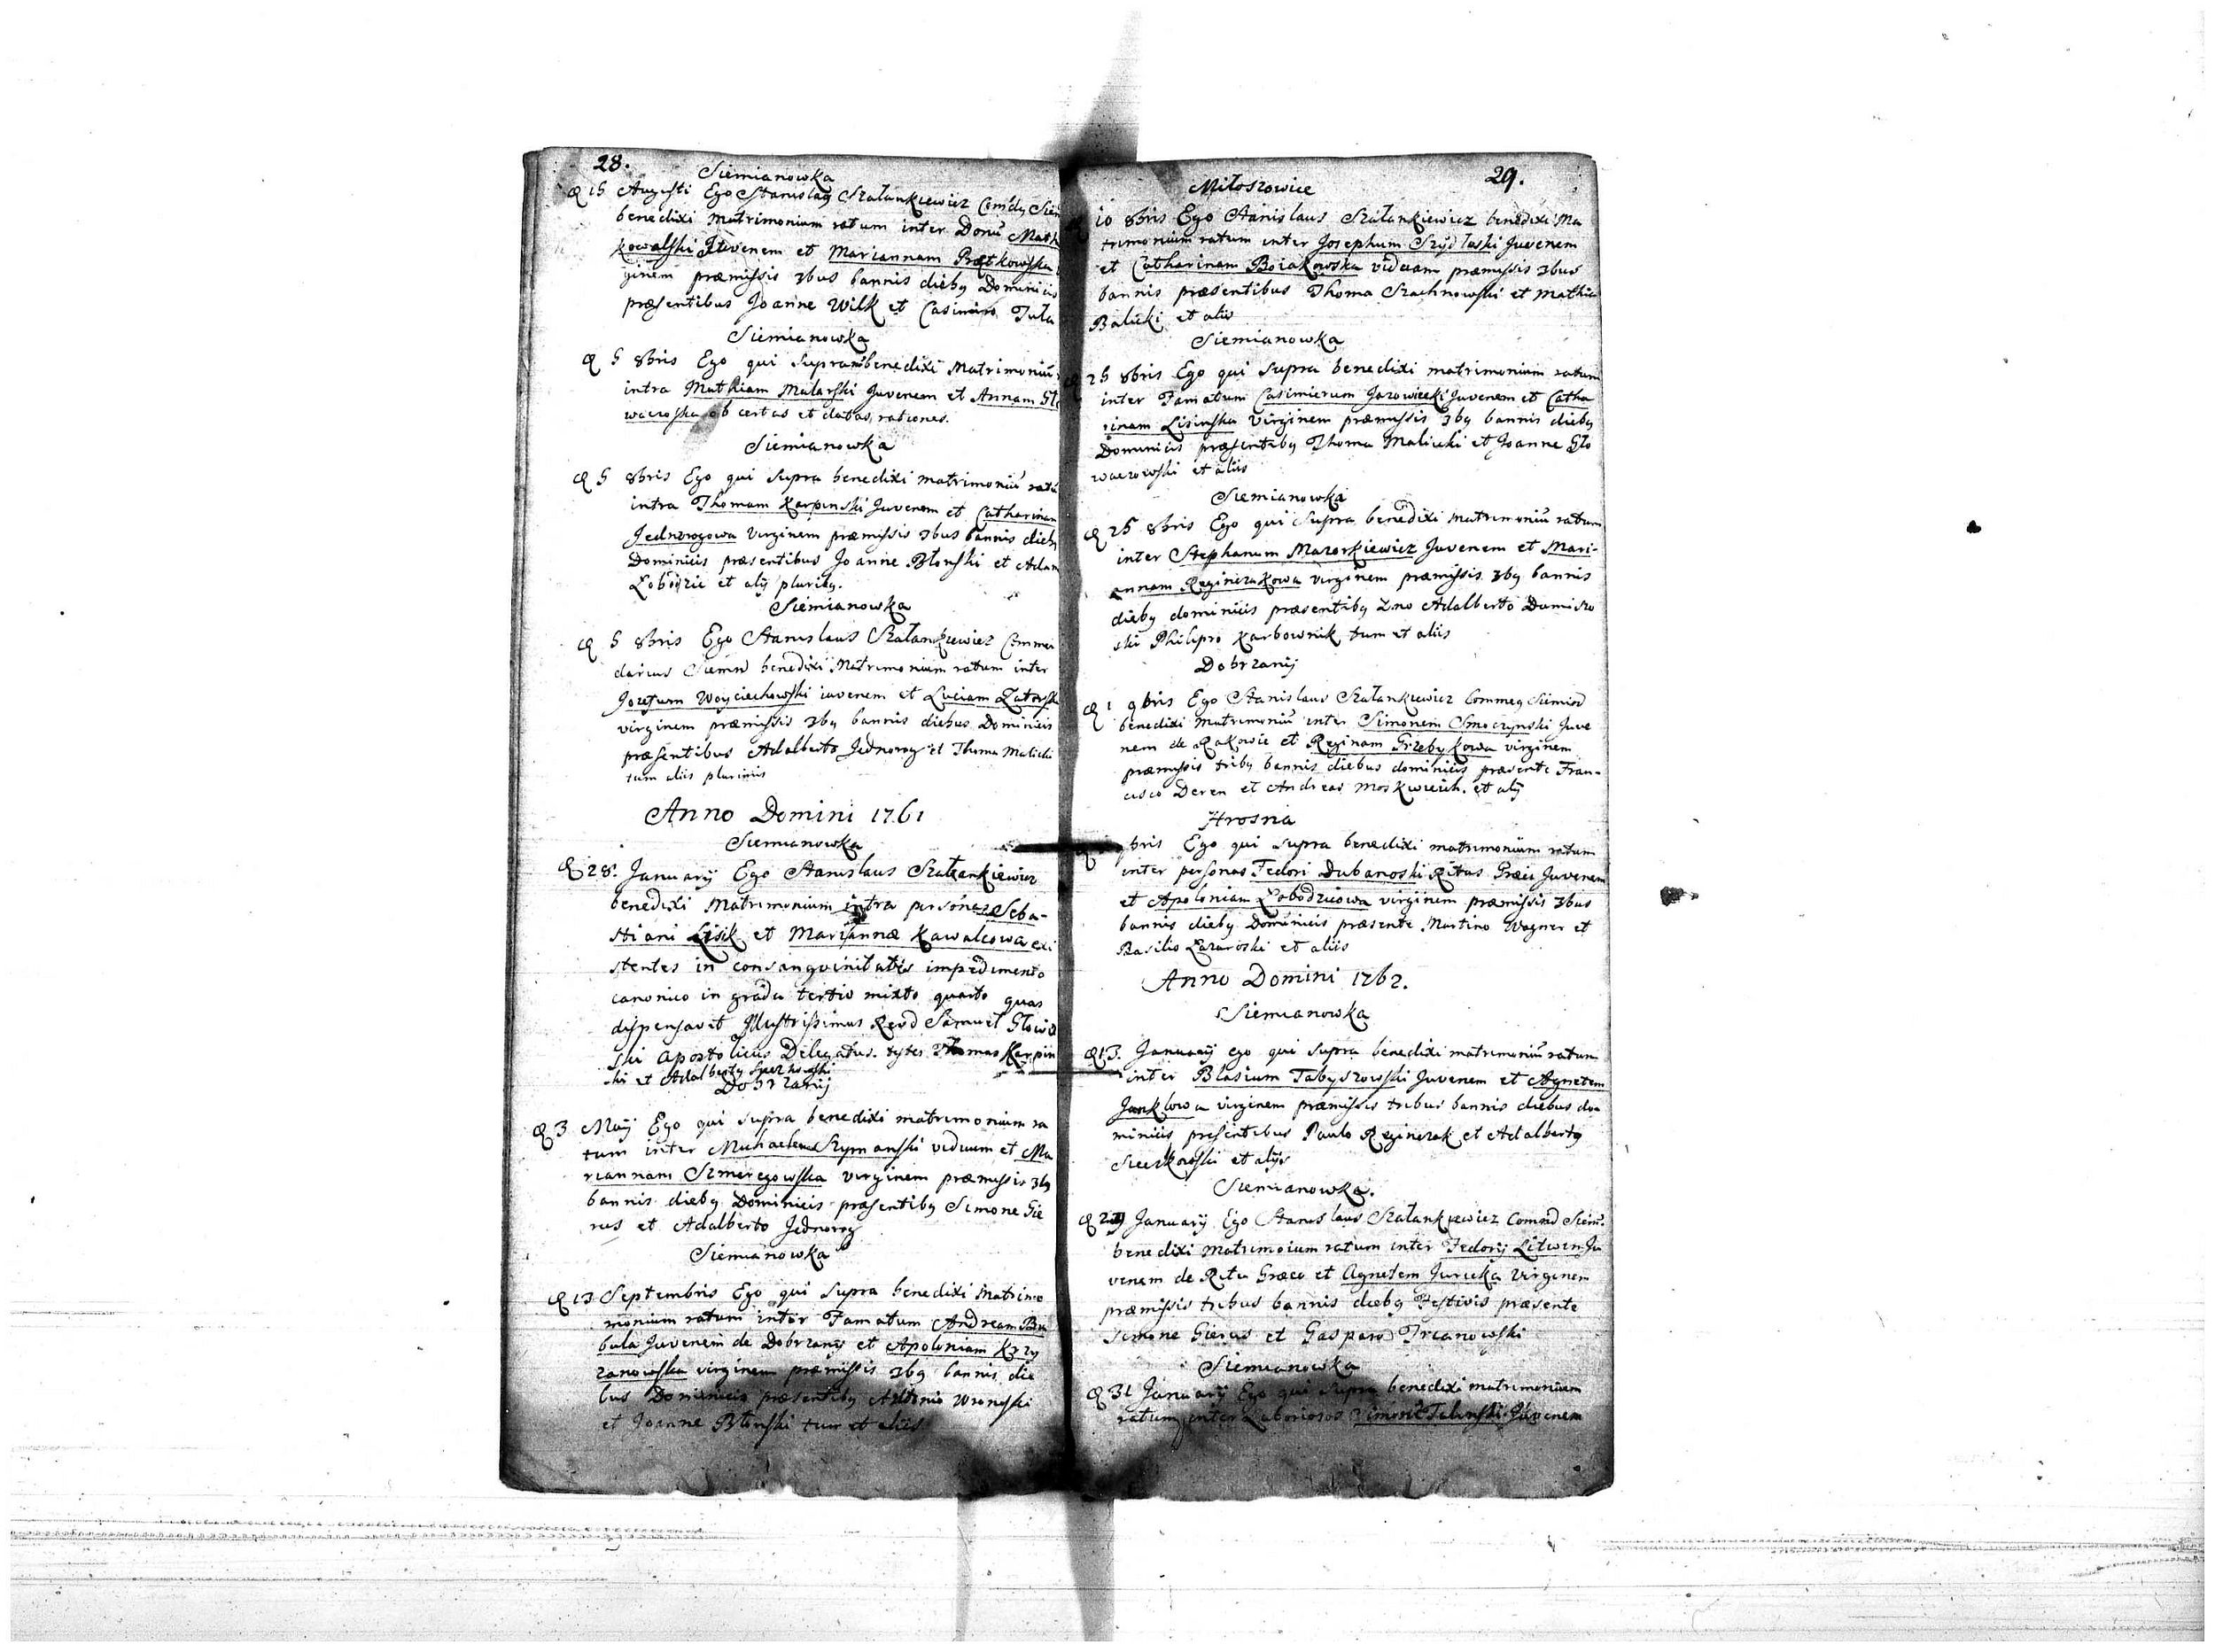 28.
Siemianowka
15 Augusti Ego Stanislaus Szałankiewicz
benedixi matrimonium ratum inter
Kowalski Juvenem et Mariannam Prątkowska
ginem præmissis 3bus bannis diebus Dominicis
præsentibus Joanne Wilk et Casimiro Tuła
Siemianowka
5 8bris Ego qui supra benedixi Matrimoniū
intra Mathiam Malarski Juvenem et Annam Gło
waczoska ob certas et datas rationes.
Siemianowka
5 8bris Ego qui supra benedixi matrimoniū ratū
intra Thomam Karpinski Juvenem et Catharinam
Jednorogowa Virginem præmissis 3bus bannis diebus
Dominicis præsentibus Joanne Błonski et Adam
Łobodzic et alys pluribus.
Siemianowka
5 8bris Ego Stanislaus Szałankiewicz Commen
darius benedixi Matrimonium ratum inter
Jozefum Woyciechowski iuvenem et Luciam Zatorska
virginem præmissis 3bus bannis diebus Dominicis
præsentibus Adalberto Jednorog et Thoma Malicki
tum aliis plurimis
Anno Domini 1761
Siemianowka
28. January Ego Stanislaus Szałankiewicz
benedixi Matrimonium intra personas Seba-
stiani Lisik et Mariannæ Kawalcowa exi
stentes in consangvinitatis impedimento
canonico in gradu tertio mixto quarto quas
dispensavit Illustrissimus Revd Samuel Głowi
ski Apostolicus Delegatus. testes Thomas Karpin
ski et Adalbertus
Dobrzany
3 May Ego qui supra benedixi matrimonium ra
tum inter Michaelem Szymanski viduum et Ma
riannam Szmeregowska virginem præmissis 3bus
bannis diebus Dominicis præsentibus Simone Gie
rus et Adalberto Jednorog
Siemianowka
13 Septembris Ego qui supra benedixi Matrimo
monium ratum inter Famatum Andream Bu
bula Juvenem de Dobrzany et Apoloniam Krzy
zanowska virginem præmissis 3bus bannis die
bus Dominicis præsentibus Antonio Wronski
et Joanne Błonski tum et aliis
29.
Miłoszowice
10 8bris Ego Stanislaus Szałankiewicz benedixi Ma
trimonium ratum inter Josephum Szydłoski Juvenem
et Catharinam Boiakowska viduam præmissis 3bus
bannis præsentibus Thoma Szachnowski et Mathia
Balicki et aliis
Siemianowka
25 8bris Ego qui supra benedixi matrimonium ratum
inter Famatum Casimierum Jazowiecki Juvenem et Catha
rinam Lisinska Virginem præmissis 3bus bannis diebus
Dominicis præsentibus Thoma Malicki et Joanne Gło
waczowski et aliis
Siemianowka
25 8bris Ego qui supra benedixi matrimoniū ratum
inter Stephanum Mazorkiewicz Juvenem et Mari-
annam Reginczukowa virginem præmissis 3bus bannis
diebus dominicis præsentibus Adalberto
ski Philipro Karbownik tum et aliis
Dobrzanij
1 9bris Ego Stanislaus Szałankiewicz
benedixi matrimoniū inter Simonem Smoczynski Juve
nem de Rakowic et Reginam Grzebykowa virginem
præmissis tribus bannis diebus dominicis præsente Fran-
cisco Deren et Andreas et alys
Hrosna
bris Ego qui supra benedixi matrimonium ratum
inter personas Fedori Dubanoski Ritus Græci Juvenem
et Apoloniam Łobodzicowa virginem præmissis 3bus
bannis diebus Dominicis præsente Martino Wagner et
Basilio Łazaroski et aliis
Anno Domini 1762.
Siemianowka
13. January ego qui supra benedixi matrimoniū ratum
inter Blasium Tabyszowski Juvenem et Agnetem
Janklowa virginem præmissis tribus bannis diebus do-
minicis presentibus Paulo Reginczak et Adalbertus
Sieczkowski et alys
Siemianowka.
January Ego Stanislaus Szałankiewicz
benedixi Matrimoium ratum inter Fedory Litwin Ju
venem de Ritu Græco et Agnetem Jurecka Virginem
præmissis tribus bannis diebus Festivis præsente
Simone Gierus et Gasparo Trcianowski
Siemianowka
31 January Ego qui supra benedixi matrimonium
ratum inter Laboriosos Juvenem